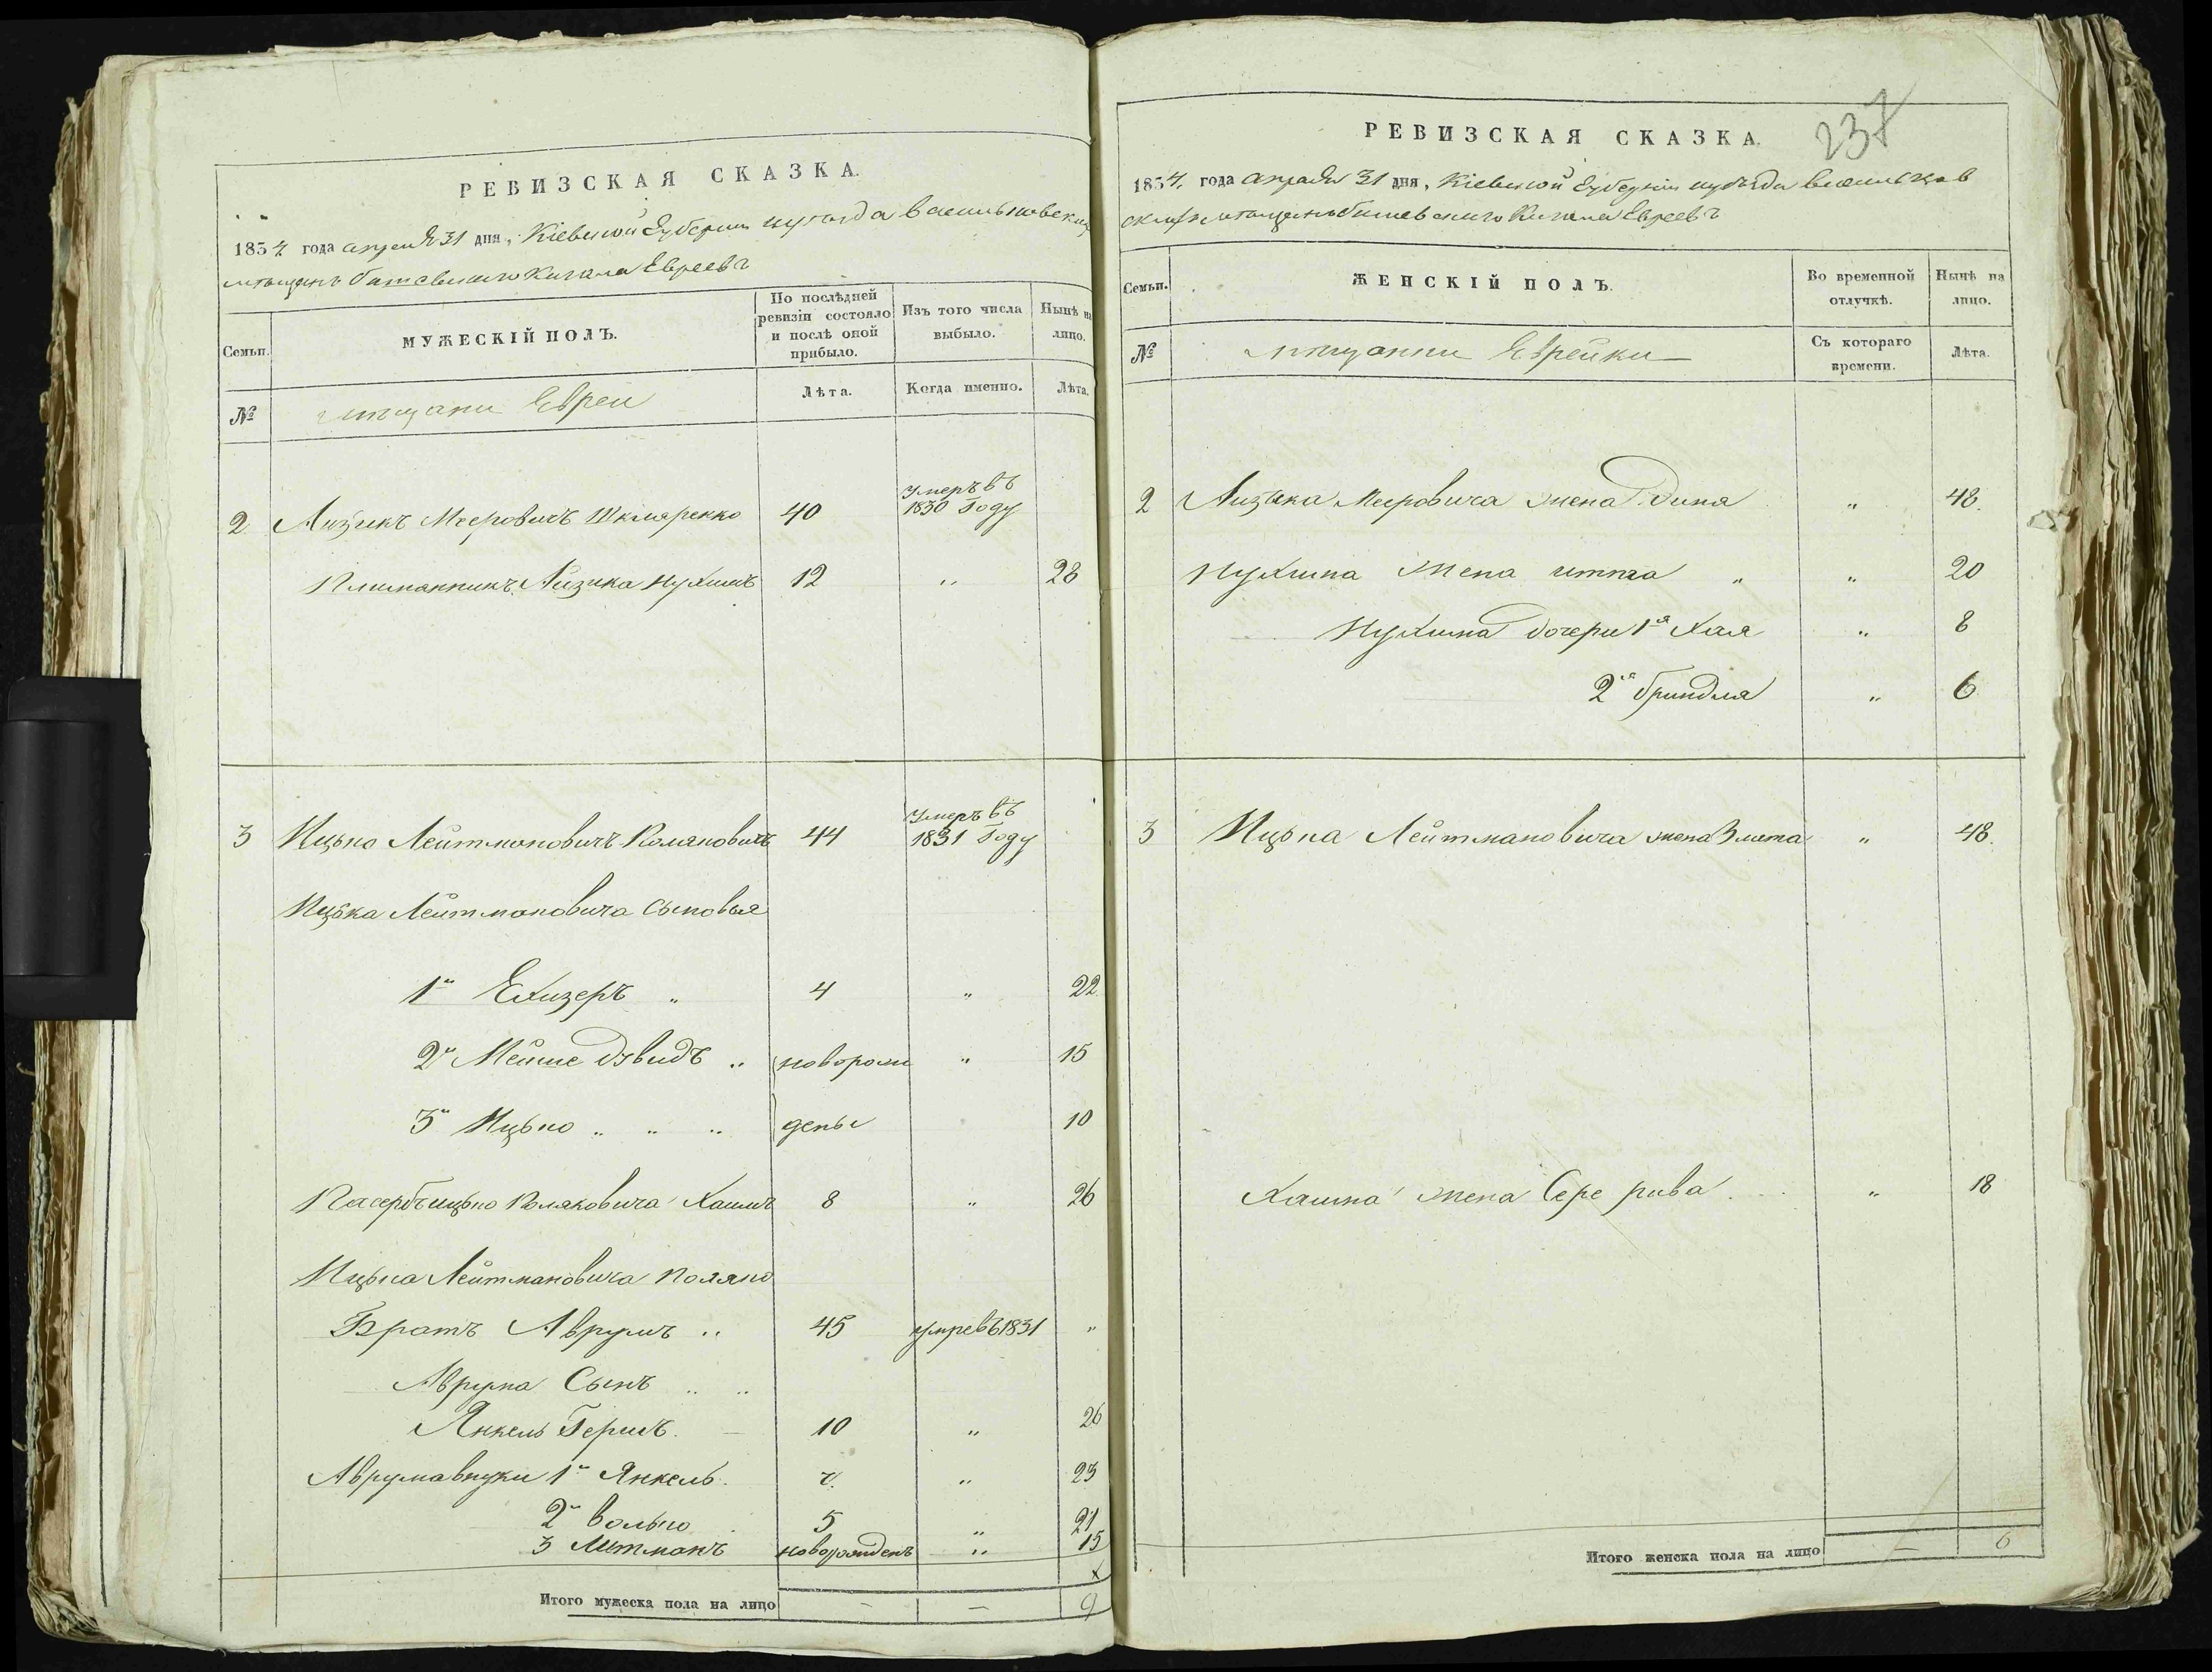 РЕВИЗСКАЯ СКАЗКА.
1834 года апреля 31 дня, Кіевской Губерніи уѣзда Васильковскихъ
мѣщанъ Кагала Евреевъ
Семьи.
МУЖЕСКІЙ ПОЛЪ.
По послѣдней ревизіи состояло и послѣ оной прибыло.
Изъ того числа выбыло.
Нынѣ на лицо.
№
мѣщани Евреи
Лѣта.
Когда именно.
Лѣта.
умеръ въ
2 Айзикъ Мееровичъ Шкляренко 40 1830 году
Племянникъ Айзика Нухимъ 12 „ 28
умеръ въ
3 Ицько Лейтмановичъ Поляковичъ 44 1831 году
Ицька Лейтмановича сыновья
1й Елизеръ „ 4 „ 22
2й Мейше Дэвидъ „ новорож „ 15
3й Ицько „ „ „ дены 10
Пасербъ Ицько Поляковича Хаимъ 8 „ 26
Ицька Лейтмановича Поляко
Братъ Аврумъ „ 45 умре въ 1831 „
Аврума Сынъ „ „
Янкель Гершъ. 10 „ 26
Аврума внуки 1й Янкель. 7. „ 23
2й Волько 5 „ 21
3 Летманъ новорожденъ „ 15
Итого мужеска пола на лицо — — 9
237
РЕВИЗСКАЯ СКАЗКА.
1834 года апреля 31 дня, Кіевской Губерніи уѣзда Васильков
скихъ мѣщанъ Кагала Евреевъ
Семьи.
ЖЕНСКІЙ ПОЛЪ.
Во временной отлучкѣ.
Нынѣ на лицо.
№
мѣщанки Еврейки
Съ котораго времени.
Лѣта.
2 Айзыка Мееровича жена Дина „ 48.
Нухима жена итта „ „ 20
Нухима дочери 1я Хая „ 8
2я бриндля „ 6
3 Ицька Лейтмановича жена Злата „ 48.
Хаима жена Сере рива „ 18
Итого женска пола на лицо — 6